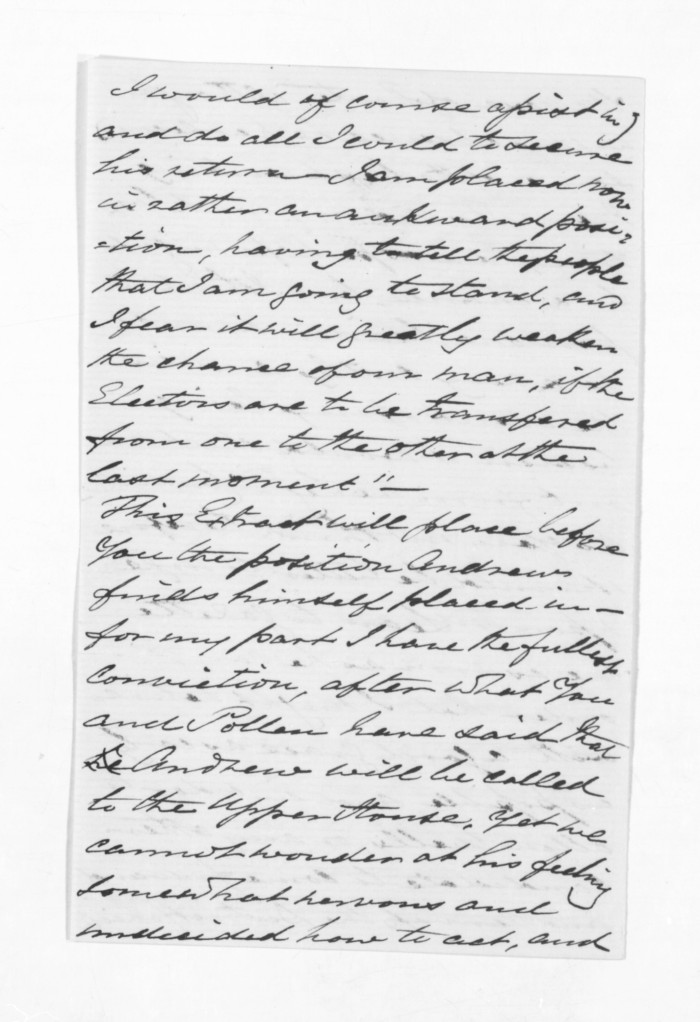 I would of course assist in
and do all I could to secure
his return - I am placed now
in rather an awkward posi=
=tion, having to tell the people
that I am going to stand, and
I fear it will greatly weaken
the chance of our man, if the
Electors are to be transfered
from one to the other at the
last moment" -
This Extract will place before
You the position Andrew
finds himself placed in -
for my part I have the fullest
conviction, after what You
and Pollen have said that
Andrew will be called
to the Upper House. Yet we
cannot wonder at his feeling
somewhat nervous and
undecided how to act, and